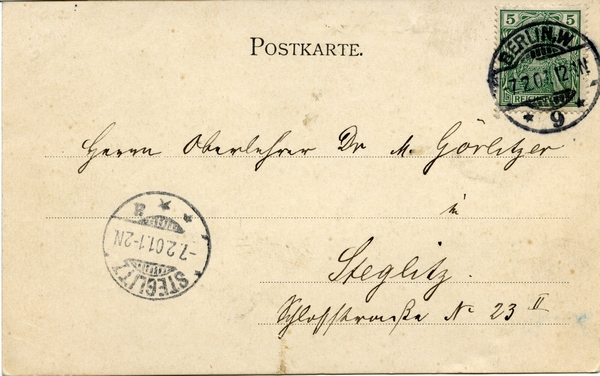 POSTKARTE.
5 5
REICHSPOST
BERLIN.W.
7.2.01.12-1N.
* 9 *
Herrn Oberlehrer Dr M. Görlitzer
in
Steglitz.
Schloßstraße No 23 II
STEGLITZ
-7.2.01.1-2N
a